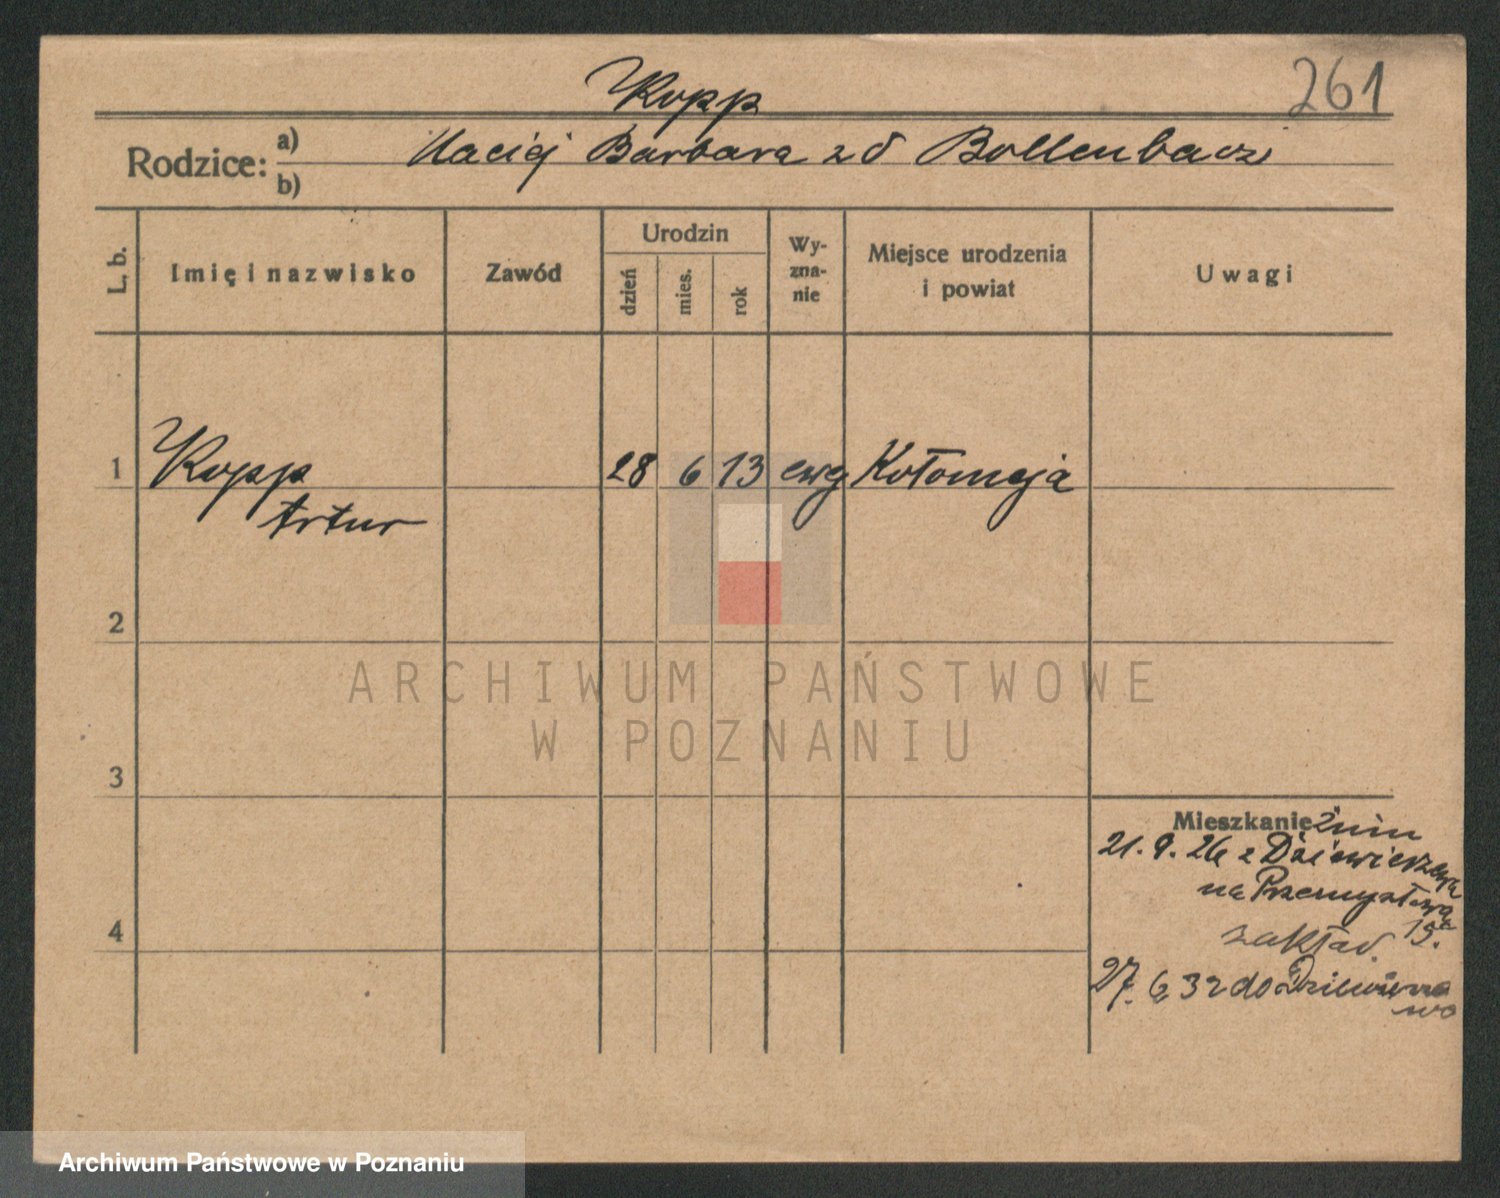 261
Kopp
Rodzice: a) Maciej Barbara z d Bollenbach
b)
L. b. Imię i nazwisko Zawód Urodzin dzień mies. rok Wyzna-nie Miejsce urodzenia i powiat Uwagi
1 Kopp 28 6 13 ewg Kołomeja
Artur
2
ARCHIWUM PAŃSTWOWE
W POZNANIU
3
Mieszkanie Żnin
21. 9. 26 z
na Przemysłową
15.
zakład.
4
27. 6 32 do
Archiwum Państwowe w Poznaniu